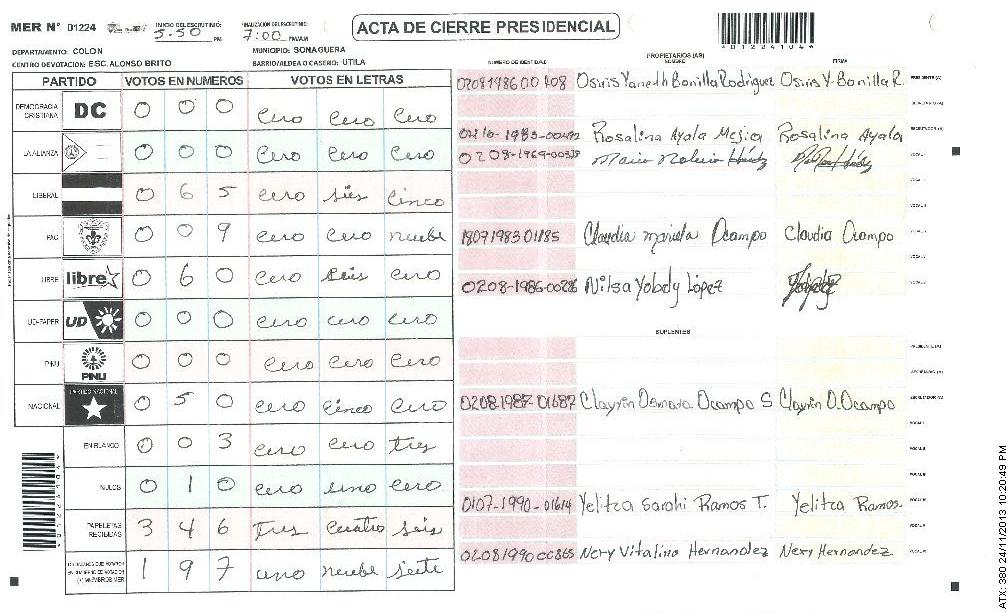 MER N° 01224 INICIO DEL ESCRUTINIO: 5-50 PM FINALIZACION DEL ESCRUTINIO: 7:00 PM/AM ACTA DE CIERRE PRESIDENCIAL
DEPARTAMENTO: COLON MUNICIPIO: SONAGUERA
CENTRO DEVOTACION: ESC. ALONSO BRITO BARRIO/ALDEA O CASERIO: UTILA
PARTIDO VOTOS EN NUMEROS VOTOS EN LETRAS
DEMOCRACIA CRISTIANA DC 0 0 0 cero cero cero
LA ALIANZA 0 0 0 cero cero cero
LIBERAL 0 6 5 cero séis cinco
PAC 0 0 9 cero cero nuebe
LIBRE libre 0 6 0 cero seis cero
UD-FAPER UD 0 0 0 cero cero cero
PINU PINU 0 0 0 cero cero cero
NACIONAL PARTIDO NACIONAL 0 5 0 cero cinco cero
EN BLANCO 0 0 3 cero cero tres
NULOS 0 1 0 cero uno cero
PAPELETAS RECIBIDAS 3 4 6 tres cuatro seis
(+) MIEMBROS MER 1 9 7 uno nuebe siete
PROPIETARIOS (AS)
NUMERO DE IDENTIDAD NOMBRE FIRMA
Osiris Yaneth Bonilla Rodriguez Osiris Y. Bonilla R. PRESIDENTE (A)
SECRETARIO (A)
Rosalina Ayala Mejica Rosalina Ayala ESCRUTADOR (A)
VOCAL I
VOCAL II
1809198301185 Claudia mariela Ocampo Claudia Ocampo
Nilsa Yobely López
SUPLENTES
PRESIDENTE (A)
SECRETARIO (A)
0208-1987-01687 Clayrin Osmara Ocampo S Clayrin O. Ocampo ESCRUTADOR (A)
VOCAL I
VOCAL II
VOCAL III
0107-1990-01614 Yelitza Sarahi Ramos T. Yelitza Ramos
0208199000865 Nery Vitalino Hernandez Nery Hernandez
ATX: 380 24/11/2013 10:20:49 PM